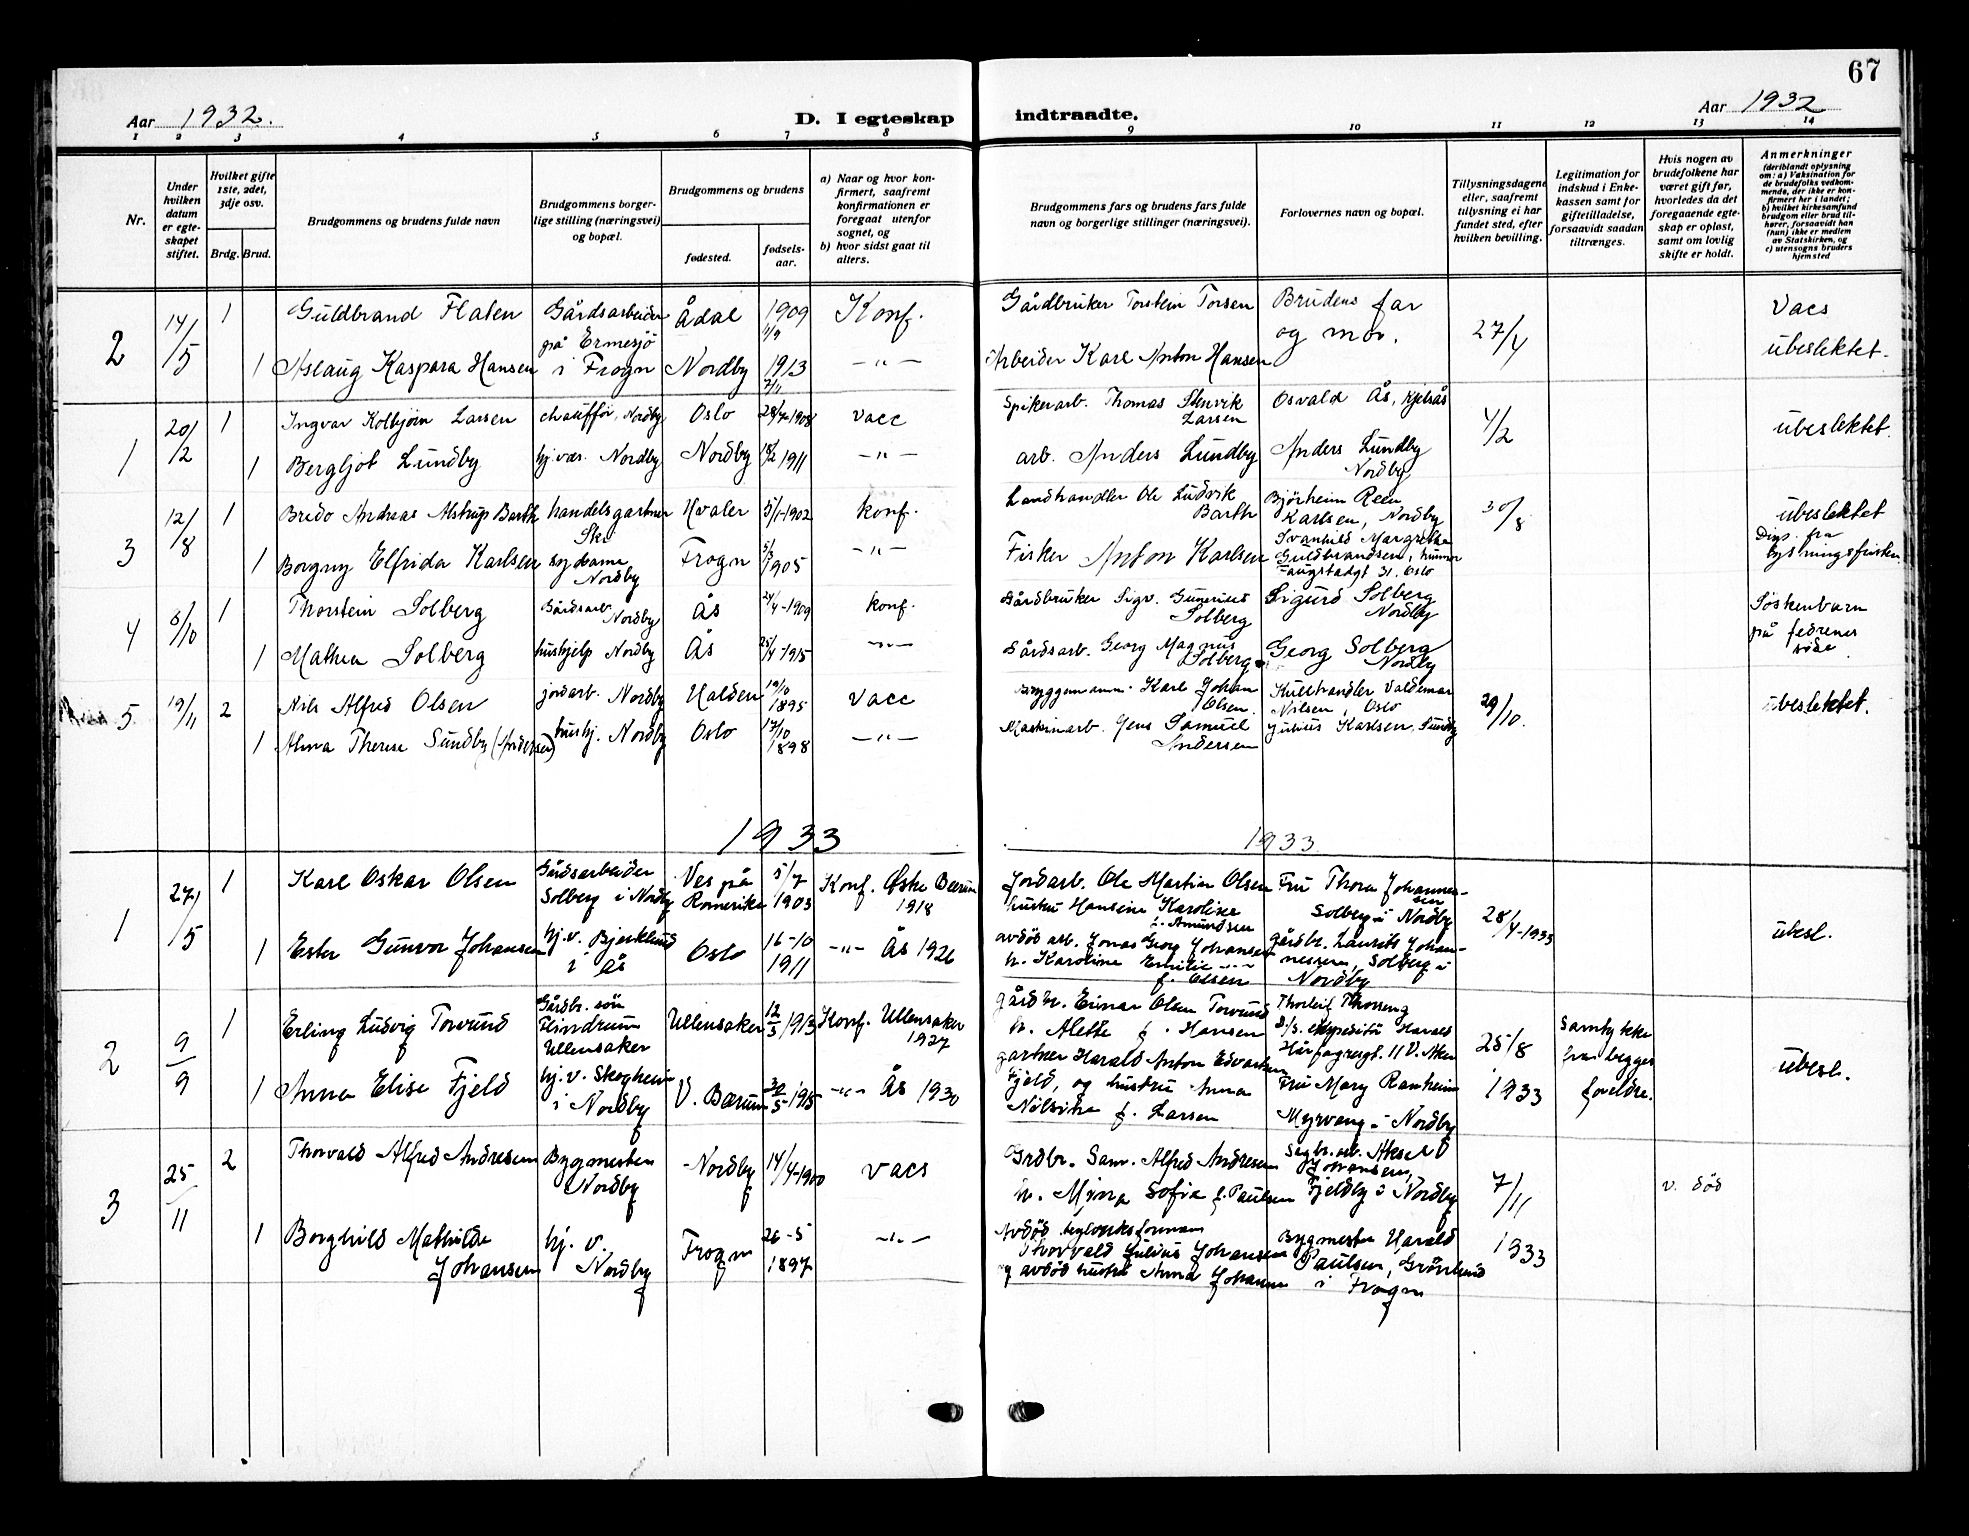 67
Aar 1932.
D. I egteskap
indtraadte.
Aar 1932
1 2 3 4 5 6 7 8
9 10 11 12 13 14
Nr.
Under hvilken datum er egteskapet stiftet.
Hvilket gifte 1ste, 2det, 3dje osv.
Brdg. Brud.
Brudgommens og brudens fulde navn
Brudgommens borgerlige stilling (næringsvei) og bopæl.
Brudgommens og brudens
fødested.
fødselsaar.
a) Naar og hvor konfirmert, saafremt konfirmationen er foregaat utenfor sognet, og
b) hvor sidst gaat til alters.
Brudgommens fars og brudens fars fulde navn og borgerlige stillinger (næringsvei).
Forlovernes navn og bopæl.
Tillysningsdagene eller, saafremt tillysning ei har fundet sted, efter hvilken bevilling.
Legitimation for indskud i Enkekassen samt for giftetilladelse, forsaavidt saadan tiltrænges.
Hvis nogen av brudefolkene har været gift før, hvorledes da det foregaaende egteskap er opløst, samt om lovlig skifte er holdt.
Anmerkninger
(deriblandt oplysning om: a) Vaksination for de brudefolks vedkommende, der ikke er konfirmert her i landet; b) hvilket kirkesamfund brudgom eller brud tilhører, forsaavidt han (hun) ikke er medlem av Statskirken, og c) utensogns bruders hjemsted
2 14/5 1 Guldbrand Flaten Gårdsarbeider på Ermesjö i Frogn Ådal 1909 Konf.
Gårdbruker Torstein Torsen Brudens far og mor. 27/4 Vacs
1 Aslaug Kaspara Hansen Nordby 1913 7/11 - " -
Arbeider Karl Anton Hansen ubeslektet.
1 20/2 1 Ingvar Kolbjörn Larsen chaufför, Nordby Oslo 1908 vacc
Spikerarb. Thomas Larsen Osvald Ås, Kjelsås 4/2 ubeslektet.
1 Bergljot Lundby hj.vær. Nordby Nordby 1911 - " -
arb. Anders Lundby Anders Lundby Nordby
3 12/8 1 Bredo Andreas Alstrup Barth handelsgartner Ski Hvaler 5/1-1902 konf.
Landhandler Ole Ludvik Barth Björheim Reen Karlsen, Nordby 30/8 ubeslektet
1 Borgny Elfrida Karlsen sydame Nordby Frogn 1905 - " -
Fisker Anton Karlsen Svanhild Margrethe Guldbrandsen, 31. Oslo
Disp. fra lysningsfristen
4 8/10 1 Thorstein Solberg Gårdsarb. Nordby Ås 24/4-1909 konf.
Gårdbruker Sigv. Gunerius Solberg Sigurd Solberg Nordby Söskenbarn på fedrenes side.
1 Mathea Solberg hushjelp Nordby Ås 25/4-1915 - " -
Gårdsarb. Georg Magnus Solberg Georg Solberg Nordby
5 19/11 2 Nils Alfred Olsen jordarb. Nordby Halden 19/10 1895 Vacc
Bryggemann. Karl Johan Olsen. Kullhandler Valdemar Nilsen, Oslo 29/10. ubeslektet.
1 Alma Therese Sundby (Andersen) hushj. Nordby Oslo 17/10 1898 - " -
Maskinarb. Jens Samuel Andersen Julius Karlsen, Sundby
1933
1933
1 27/5 1 Karl Oskar Olsen Gårdsarbeider Solberg i Nordby Nes på Romerike 5/7 1903 Konf. Østre Bærum 1918
Jordarb. Ole Martin Olsen hustru Hansine Karoline f. Amundsen Fru Thora Johannessen Solberg i Nordby 28/4-1933 ubesl.
1 Ester Gunvor Johansen hj.v. Bjerklund i Ås Oslo 16-10 1911 - " - Ås 1926
avdöd arb. Jonas Georg Johansen h. Karoline Emilie f. Olsen gårdbr. Laurits Johannessen, Solberg i Nordby
2 9/9 1 Erling Ludvig Torvund Gårdbr. sön Ullensaker Ullensaker 12/5 1913 Konf. Ullensaker 1927
gårdbr. Einar Olsen Torvund h. Alette f. Hansen Thorleif Thorseng expeditör Harald Hårfagresgt. 11 V. Aker 25/8 1933 Samtykke fra begges foreldre. ubesl.
1 Anna Elise Fjeld hj.v. Skogheim i Nordby V. Bærum 30/5 1915 - " - Ås 1930
gartner Harald Anton Edvardsen Fjeld, og hustru Anna f. Larsen Fru Mary Ranheim Myrvang i Nordby
3 25/11 2 Thorvald Alfred Andresen Bygmester Nordby Nordby 14/4-1900 vacs
Grdbr. Sam. Alfred Andresen h. Mina Sofie f. Paulsen Sagbr.arb. Aksel Johansen, Fjeldby i Nordby 7/11 1933 v. död
1 Borghild Mathilde Johansen hj. v. Nordby Frogn 26-5 1897 - " -
Avdöd teglverksformann Thorvald Julius Johansen og avdöd hustru Anna Johansen Bygmester Harald Paulsen, Grönlund i Frogn